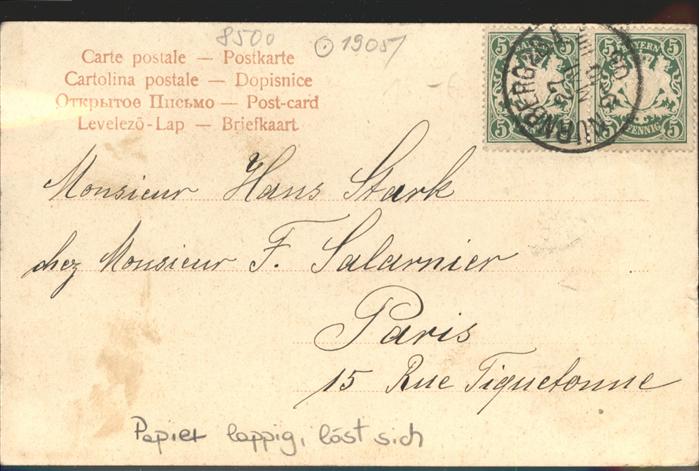 8500 1905
Carte postale — Postkarte
Cartolina postale — Dopisnice
Открытое Письмо — Post-card
Levelező-Lap — Briefkaart
5 BAYERN 5
5 PFENNIG 5
NÜRNBERG
Monsieur Hans Stark
chez Monsieur F. Salarnier
Paris
15 Rue Tiquetonne
Papier lappig, löst sich